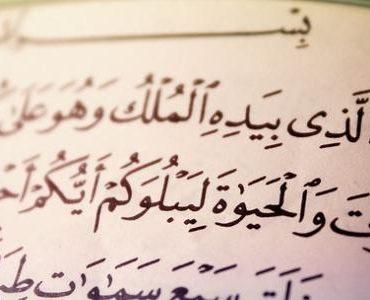 بِسْـ
ٱلَّذِى بِيَدِهِ ٱلْمُلْكُ وَهُوَ عَلَىٰ
وَٱلْحَيَوٰةَ لِيَبْلُوَكُمْ أَيُّكُمْ
سَبْعَ سَمَٰوَٰتٍ